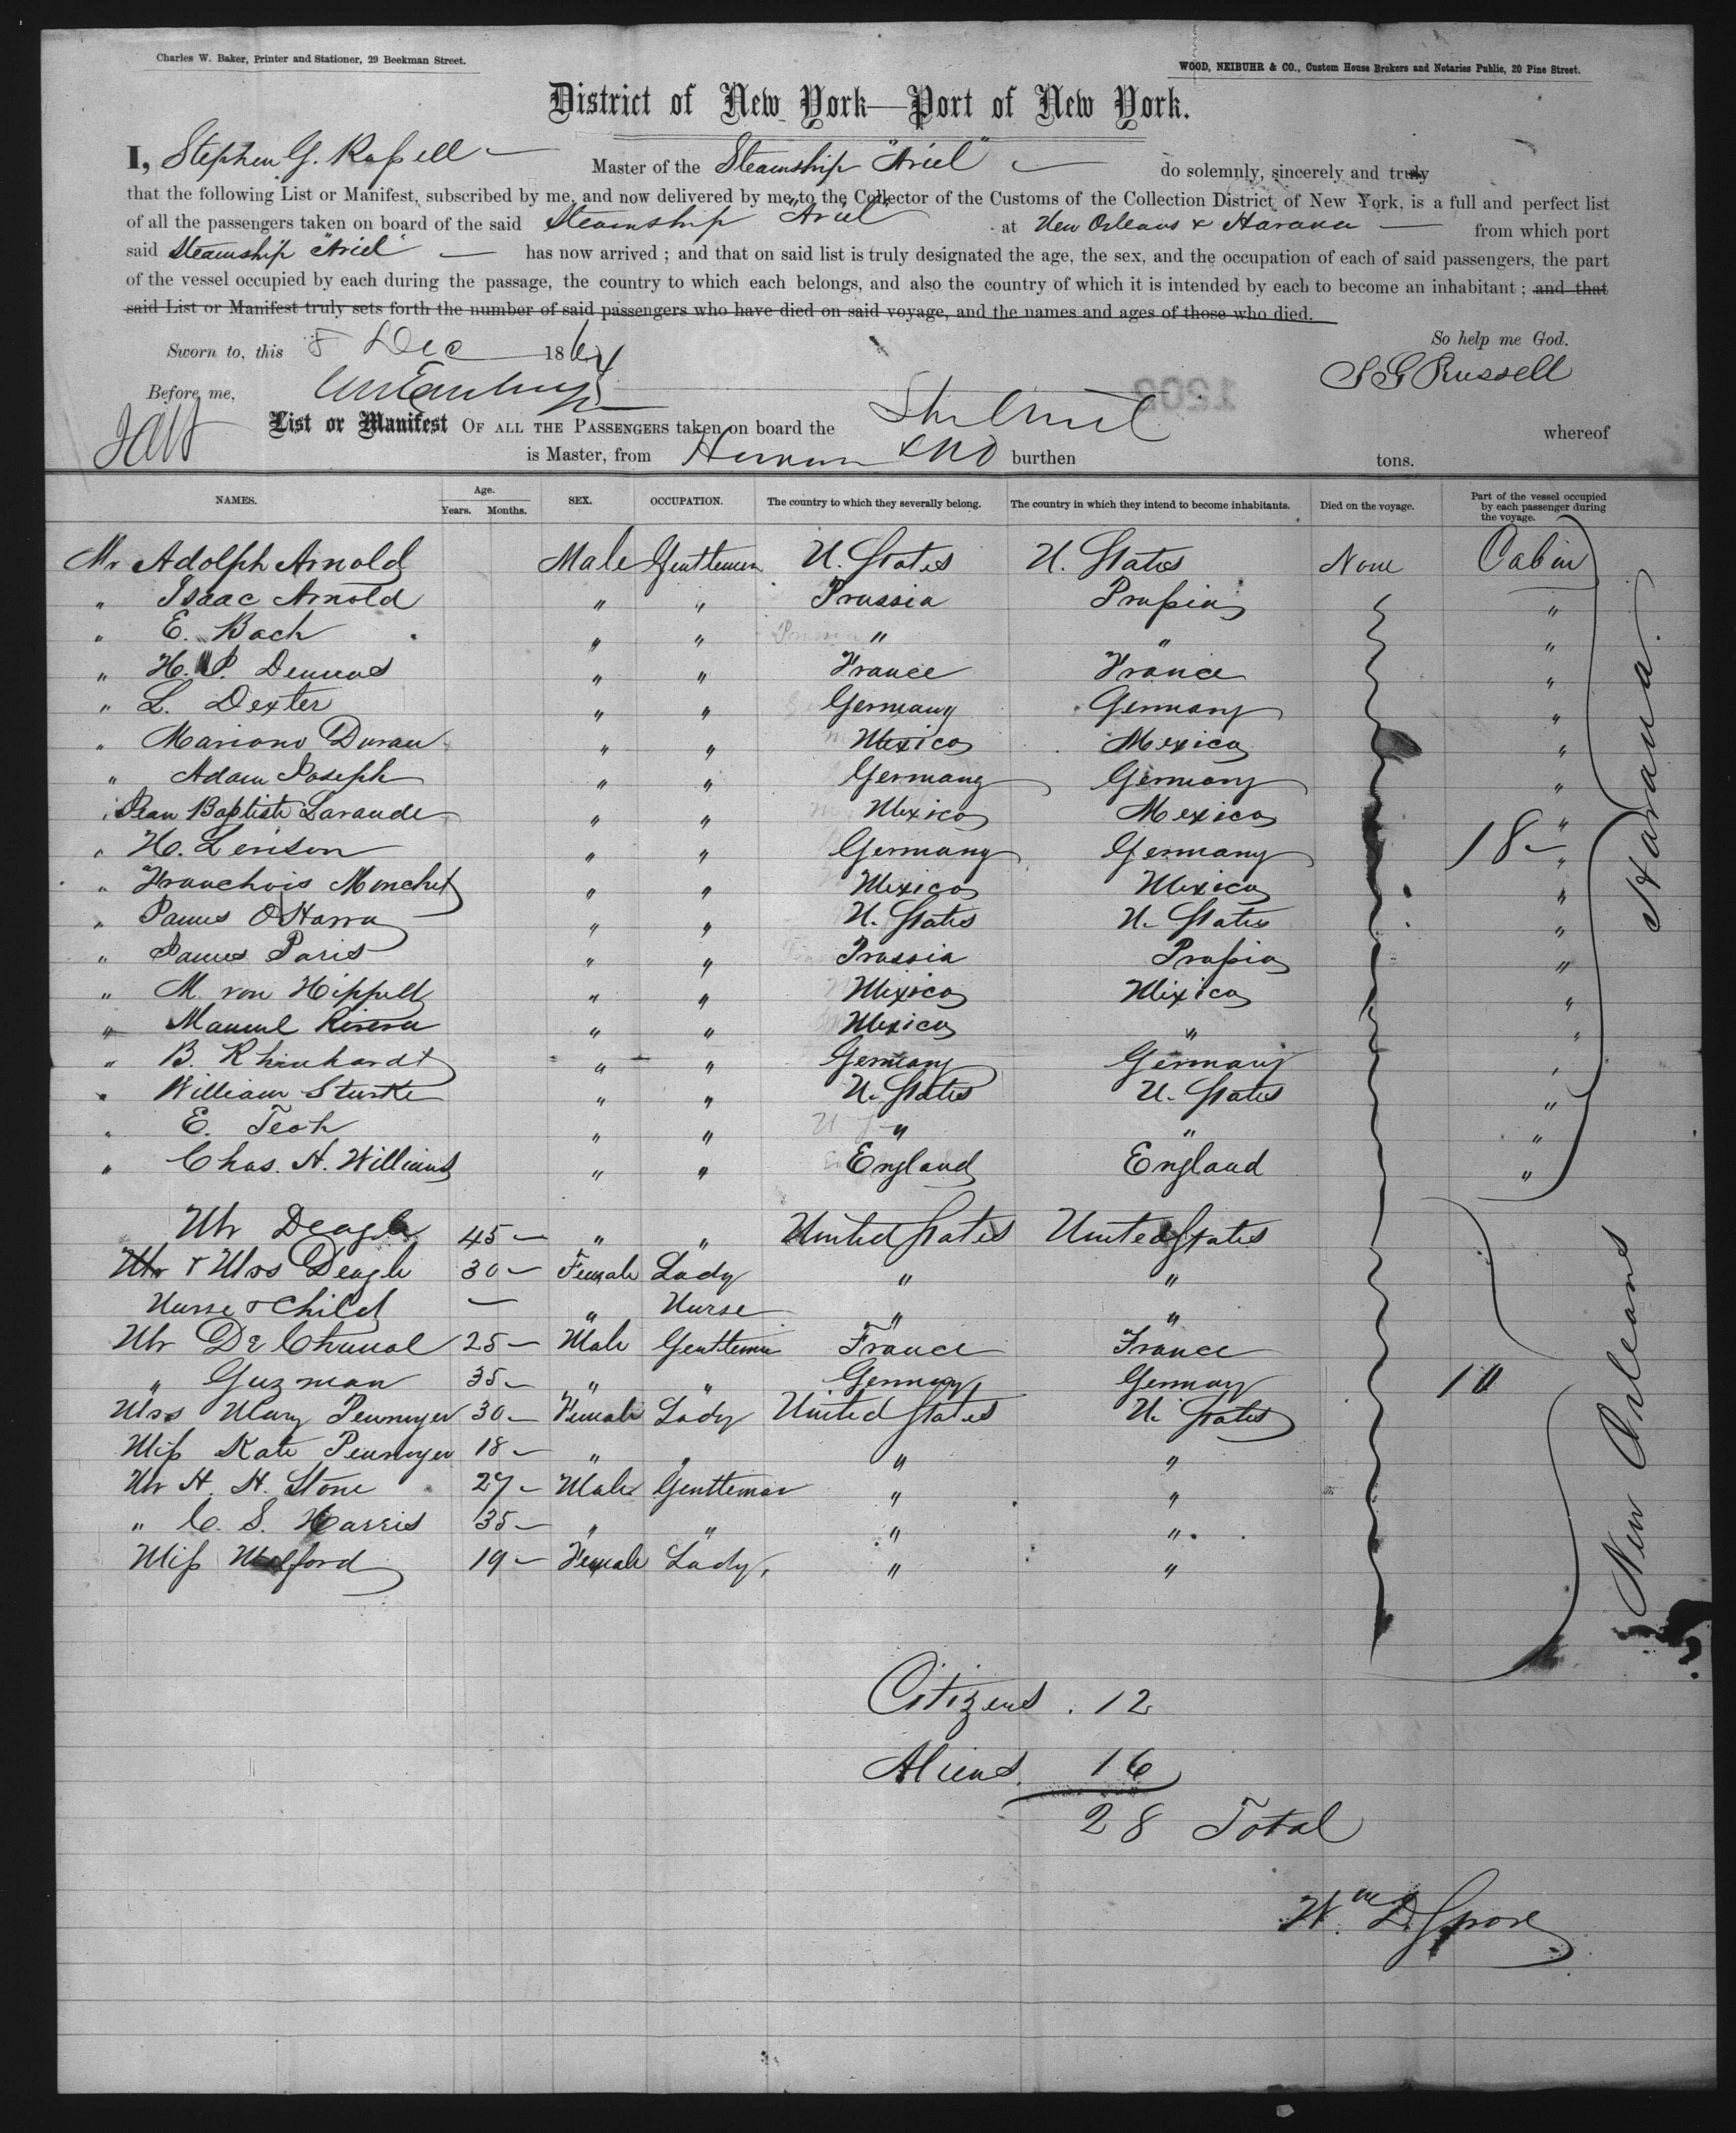 Charles W. Baker, Printer and Stationer, 29 Beekman Street.
WOOD, NEIBUHR & CO., Custom House Brokers and Notaries Public, 20 Pine Street.
District of New York—Port of New York.
I, Stephen G. Russell Master of the Steamship "Ariel" do solemnly, sincerely and truly
that the following List or Manifest, subscribed by me, and now delivered by me to the Collector of the Customs of the Collection District of New York, is a full and perfect list
of all the passengers taken on board of the said Steamship "Ariel" at New Orleans & Havana from which port
said Steamship "Ariel" has now arrived ; and that on said list is truly designated the age, the sex, and the occupation of each of said passengers, the part
of the vessel occupied by each during the passage, the country to which each belongs, and also the country of which it is intended by each to become an inhabitant ; and that
said List or Manifest truly sets forth the number of said passengers who have died on said voyage, and the names and ages of those who died.
So help me God.
Sworn to, this 5 Dec 1864
S G Russell
Before me,
List or Manifest OF ALL THE PASSENGERS taken on board the Str Ariel whereof
is Master, from Havana & NO burthen tons.
NAMES. Age. Years. Months. SEX. OCCUPATION. The country to which they severally belong. The country in which they intend to become inhabitants. Died on the voyage. Part of the vessel occupied by each passenger during the voyage.
Mr Adolph Arnold Male Gentlemen U. States U. States None Cabin
" Isaac Arnold " " Prussia Prussia "
" E. Bach " " " " "
" H. P. " " France France "
" L. Dexter " " Germany Germany "
" Mariano Duran " " Mexico Mexico "
" Adam Joseph " " Germany Germany "
" Jean Baptiste Laraude " " Mexico Mexico "
" H. Levison " " Germany Germany 18 - "
" Franchois Monchet " " Mexico Mexico "
" James O'Harra " " U. States U. States "
" James Paris " " Prussia Prussia "
" M. von Hippell " " Mexico Mexico "
" Manuel Rivera " " Mexico " "
" B. Rhinhardt " " Germany Germany "
" William Sturtte " " U. States U. States "
" E. " " " " "
" Chas. H. Williams " " England England "
Havana.
Mr Deagle 45 — " " United States United States
Mr & Mrs Deagle 30 — Female Lady " "
Nurse & Child — " Nurse " "
Mr De 25 — Male Gentleman France France
" Guzman 35 — " " Germany Germany 10
Mrs Mary Pennoyer 30 — Female Lady United States U. States
Miss Kate Pennoyer 18 — " " " "
Mr H. H. Stone 27 — Male Gentleman " "
" C. S. Harris 35 — " " " "
Miss Milford 19 — Female Lady, " "
New Orleans
Citizens . 12
Aliens. 16
28 Total
Wm D